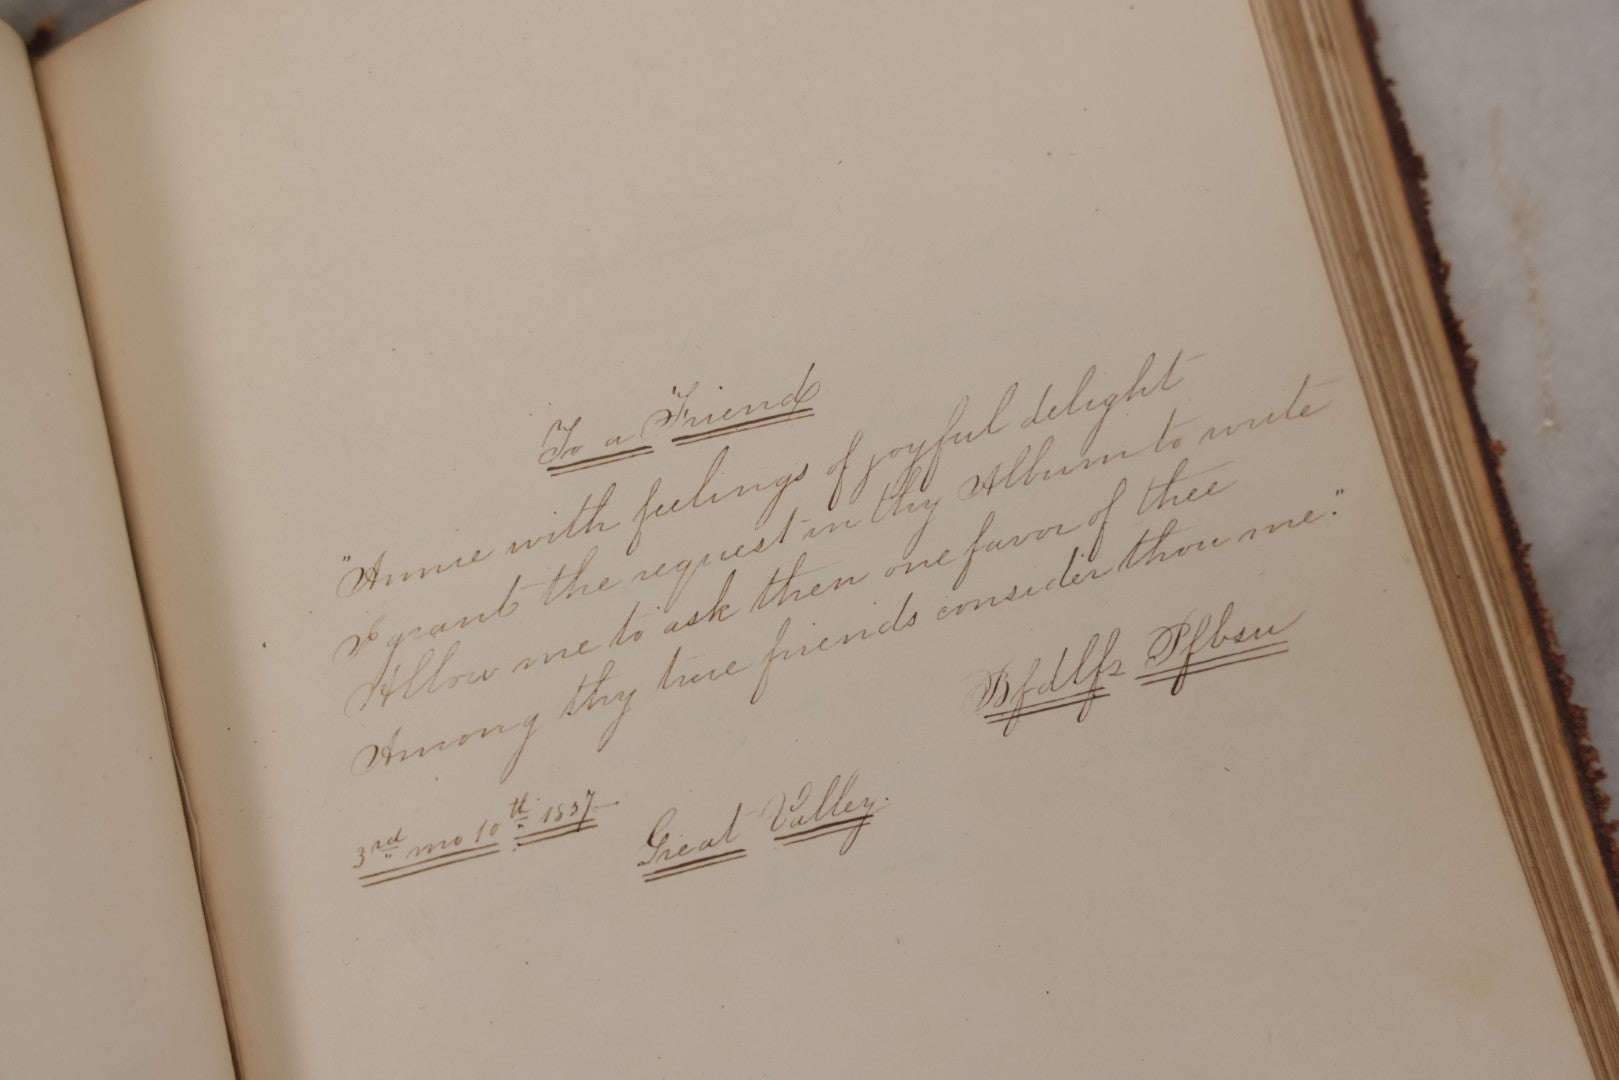 To a "Friend
"Annie with feelings of joyful delight
I grant the request in thy Album to write
Allow me to ask then one favor of thee
Among thy true friends consider thou me."
3rd mo 10th 1857 Great Valley.